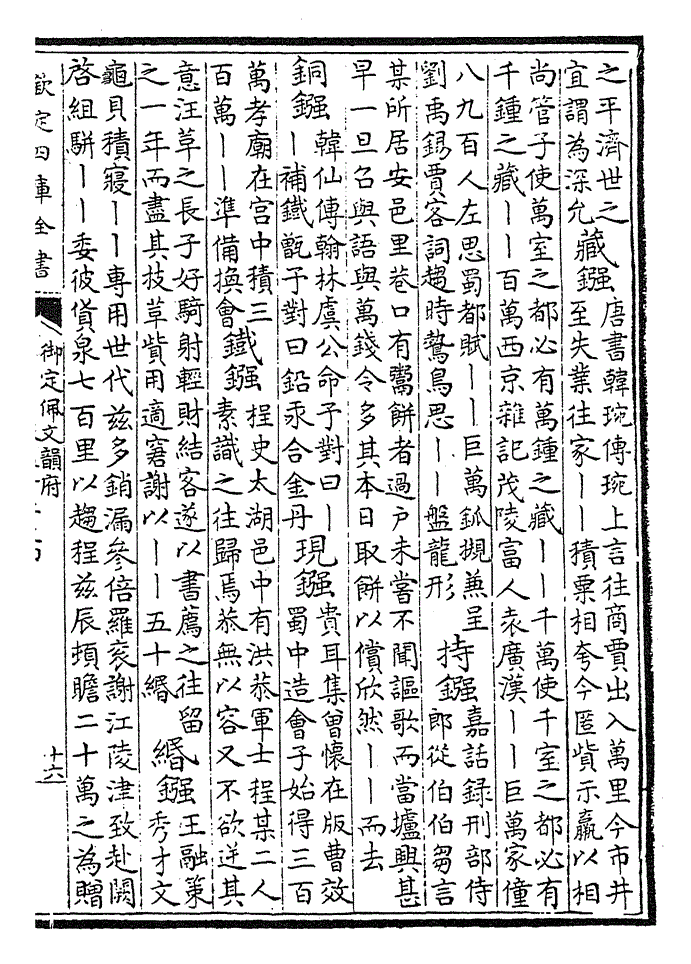 之平濟世之
宜謂為深允
藏鏹
唐書韓琬傳琬上言往商賈出入萬里今市井
至失業往家――積粟相夸今匿貲示羸以相
尚管子使萬室之都必有萬鍾之藏――千萬使千室之都必有
千鍾之藏――百萬西京雜記茂陵富人袁廣漢――巨萬家僮
八九百人左思蜀都賦――巨萬鈲摫兼呈
劉禹錫賈客詞趨時鷙鳥思――盤龍形
持鏹
嘉話録刑部侍
郎從伯伯芻言
某所居安邑里巷口有鬻餅者過户未嘗不聞謳歌而當壚興甚
早一旦召與語與萬錢令多其本日取餅以償欣然――而去
銅鏹
韓仙傳翰林虞公命予對曰―
―補鐵甑子對曰鉛汞合金丹
現鏹
貴耳集曾懷在版曹效
蜀中造會子始得三百
萬孝廟在宫中積三
百萬――準備換會
鐵鏹
程史太湖邑中有洪恭軍士程某二人
素識之往歸焉恭無以容又不欲逆其
意汪草之長子好騎射輕財結客遂以書薦之往留
之一年而盡其技草貲用適窘謝以――五十緡
緡鏹
王融策
秀才文
龜貝積寢――専用世代兹多銷漏參倍羅衮謝江陵津致赴闕
啓組駢――委彼貨泉七百里以趨程兹辰頓贍二十萬之為贈
欽定四庫全書
御定佩文韻府
十六